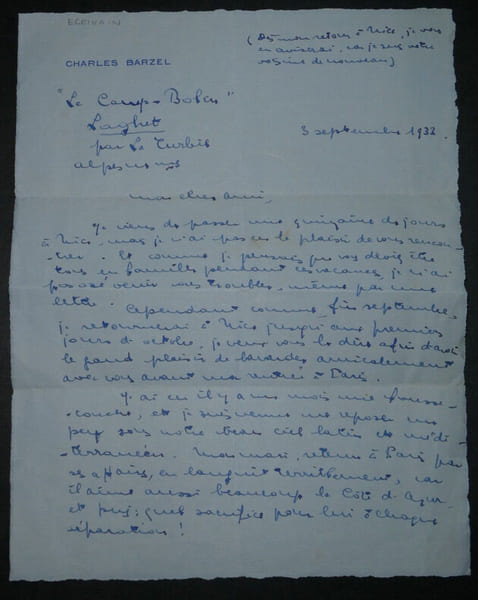 ECRIVAIN
CHARLES BARZEL
(Dès mon retour à Nice, je vous
en aviserai, car je serai votre
voisine de nouveau)
"Le Camp-Bolen"
Laghet
par La Turbie
alpes mmes
3 septembre 1932
mon cher ami,
Je viens de passer une quinzaine de jours
à Nice, mais je n'ai pas eu le plaisir de vous rencon-
-trer. Et comme je pensais que vous deviez être
tous en familles pendant ces vacances, je n'ai
pas osé venir vous troubler, même par une
lettre.
Cependant comme fin septembre,
je retournerai à Nice jusqu'aux premiers
jours d'octobre, je veux vous le dire afin d'avoir
le grand plaisir de bavarder amicalement
avec vous avant ma rentrée à Paris.
J'ai eu il y a un mois une fausse-
-couche, et je suis venue me reposer un
peu sous notre beau ciel latin et médi-
-terranéen. Mon mari, retenu à Paris par
ses affaires, en languit terriblement, car
il aime aussi beaucoup la Côte d'Azur
et puis : quel sacrifice pour lui à chaque
séparation !